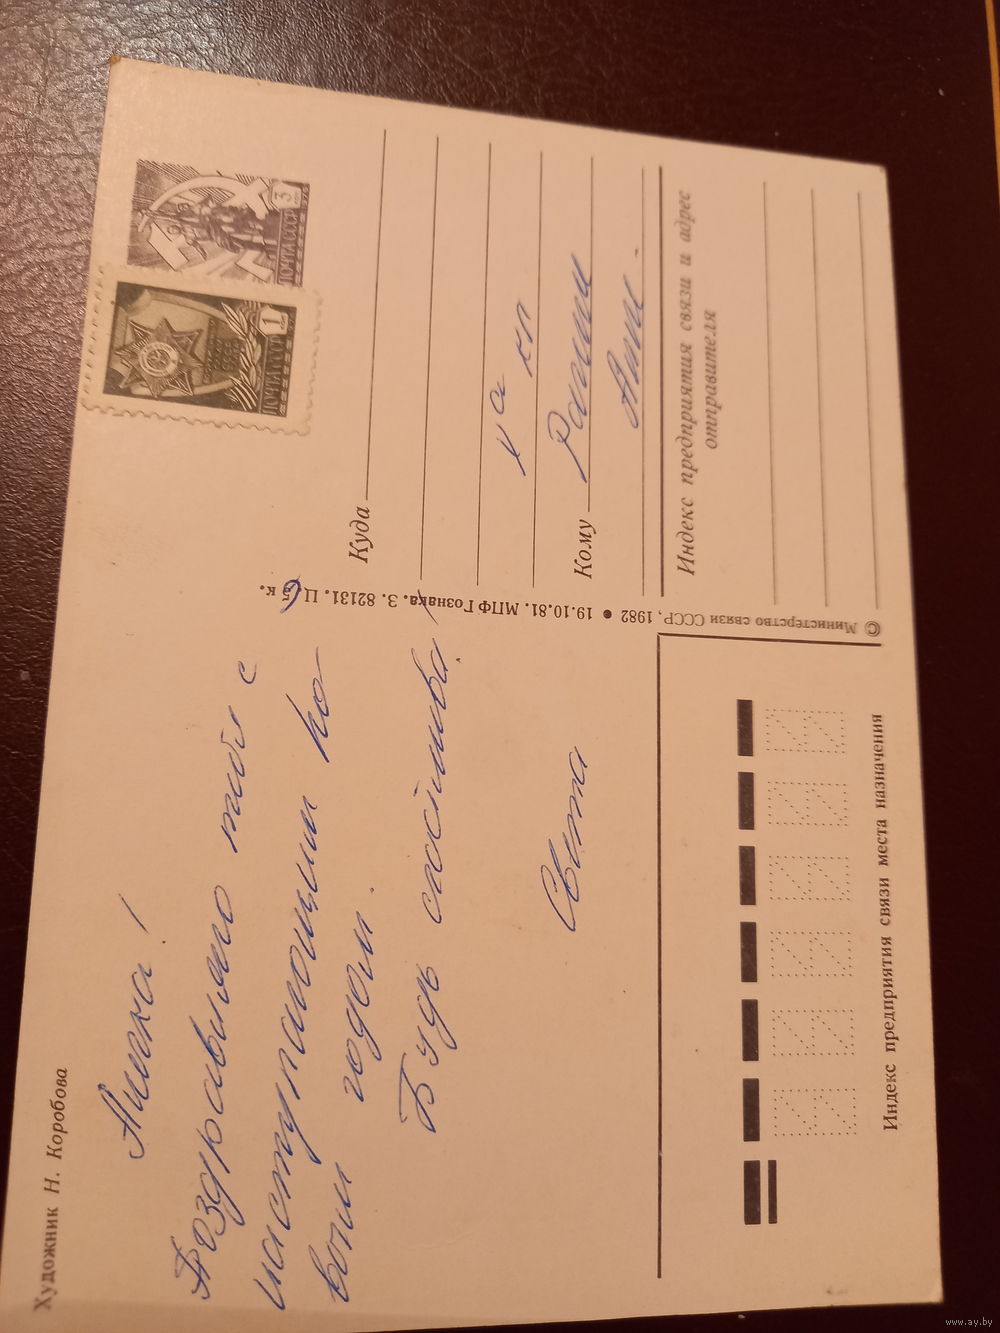 Художник Н. Коробова
Анечка!
Поздравляю тебя с
наступающим но-
вым годом.
Будь счастлива!
Света
© Министерство связи СССР, 1982 • 19.10.81. МПФ Гознака. З. 82131. Ц. 5 к.
ПОЧТА СССР
1
ПОЧТА СССР
3
Куда
Кому
Ане
Индекс предприятия связи и адрес
отправителя
Индекс предприятия связи места назначения
www.ay.by